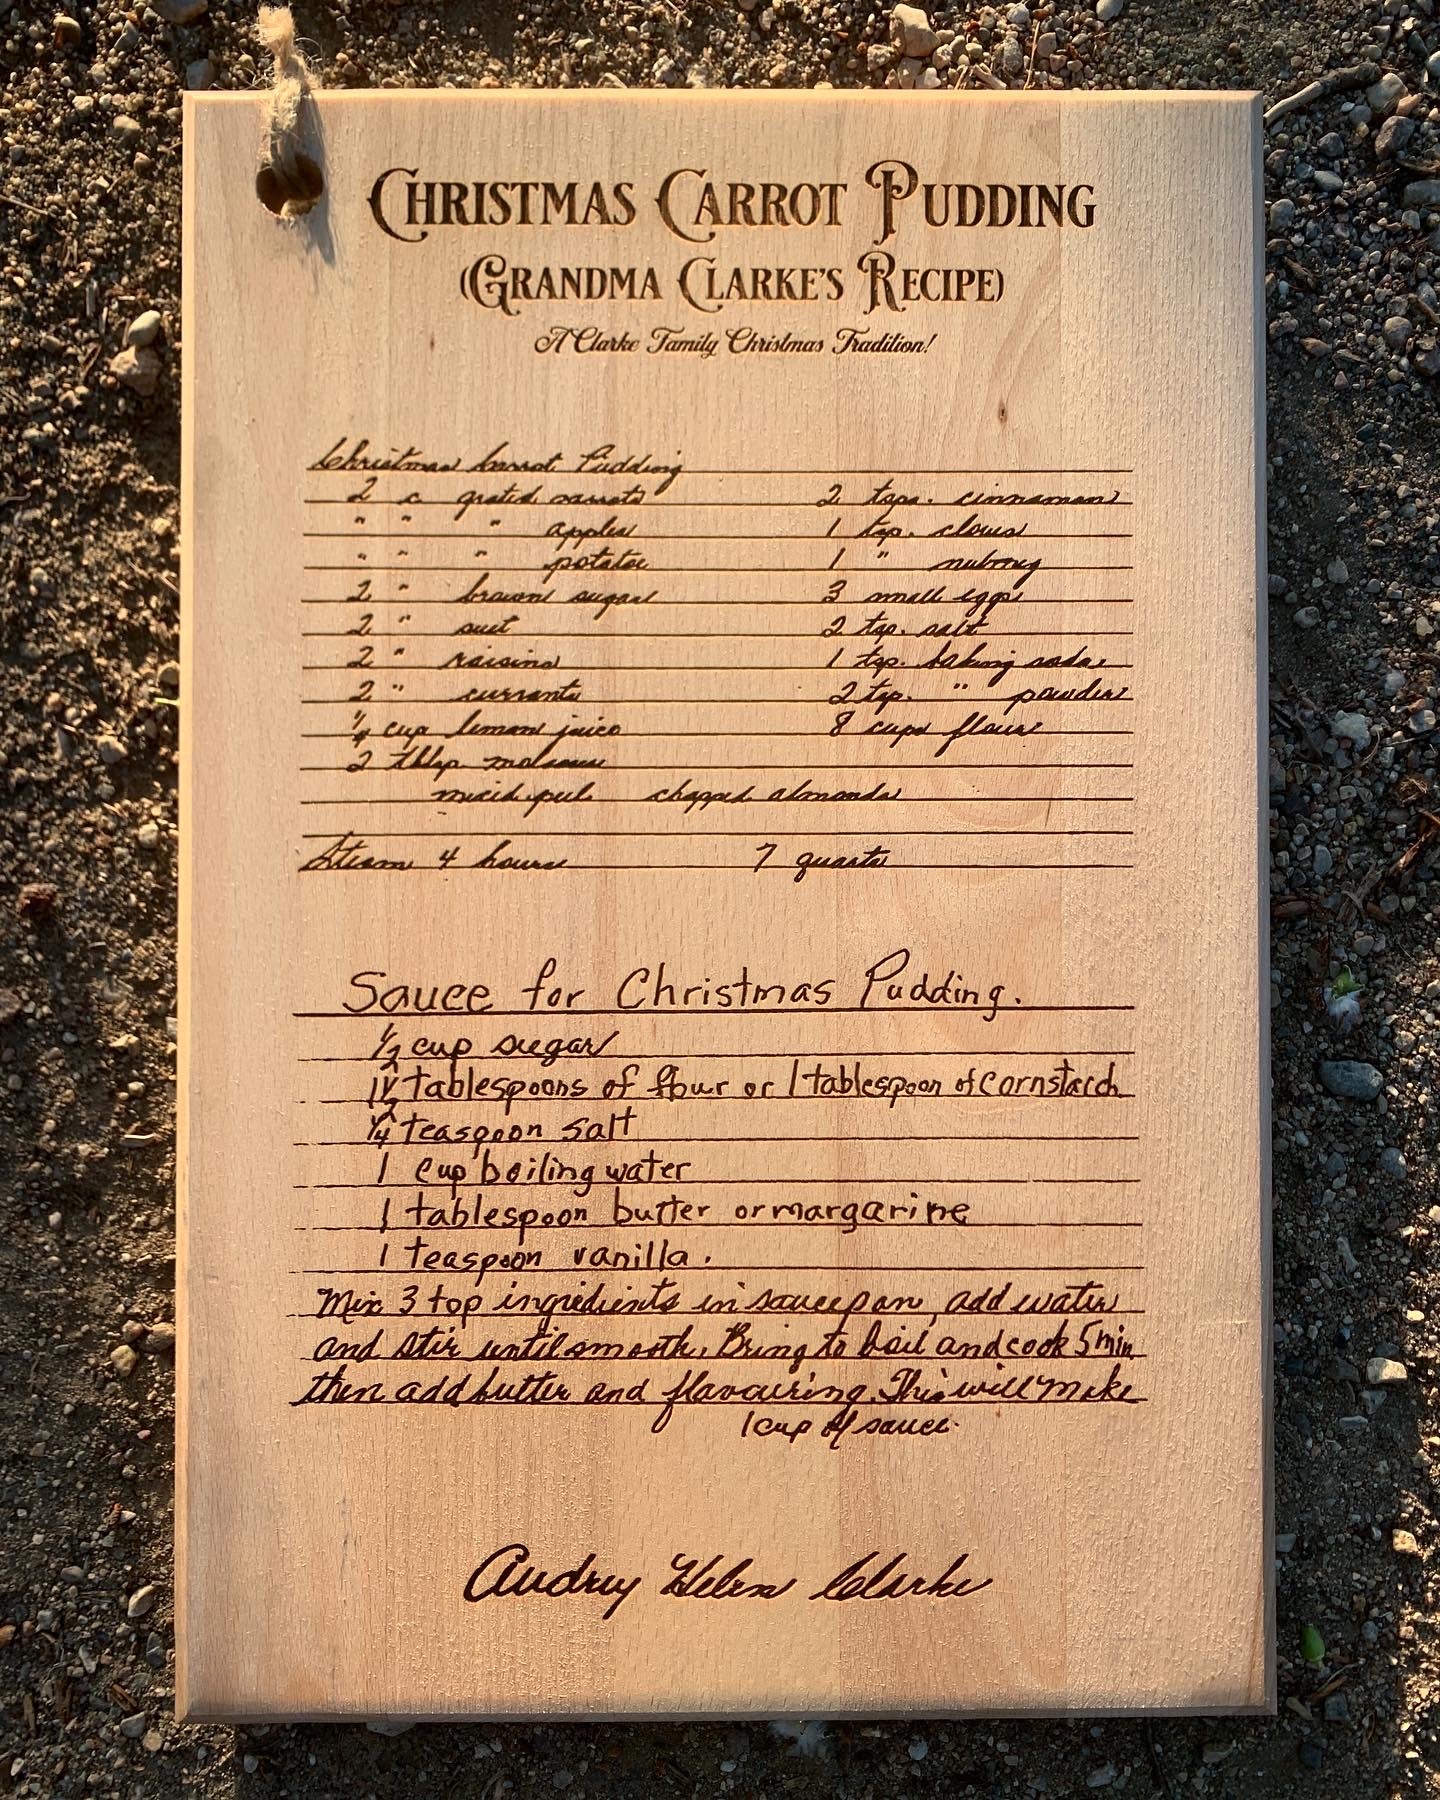 Christmas Carrot Pudding
(Grandma Clarke's Recipe)
A Clarke Family Christmas Tradition!
Christmas Carrot Pudding
2 c grated carrots 2 tsps. cinnamon
" " " apples 1 tsp. cloves
" " " potatoe 1 " nutmeg
2 " brown sugar 3 small eggs
2 " suet 2 tsp. salt
2 " raisins 1 tsp. baking soda
2 " currants 2 tsp. " powder
1/4 cup lemon juice 8 cups flour
2 tblsp. molasses
mixed peel chopped almonds
Steam 4 hours 7 quarts
Sauce for Christmas Pudding.
1/2 cup sugar
1 1/2 tablespoons of flour or 1 tablespoon of cornstarch
1/4 teaspoon salt
1 cup boiling water
1 tablespoon butter or margarine
1 teaspoon vanilla.
Mix 3 top ingredients in saucepan, add water
and stir until smooth. Bring to boil and cook 5 min
then add butter and flavouring. This will make
1 cup of sauce.
Audrey Helen Clarke